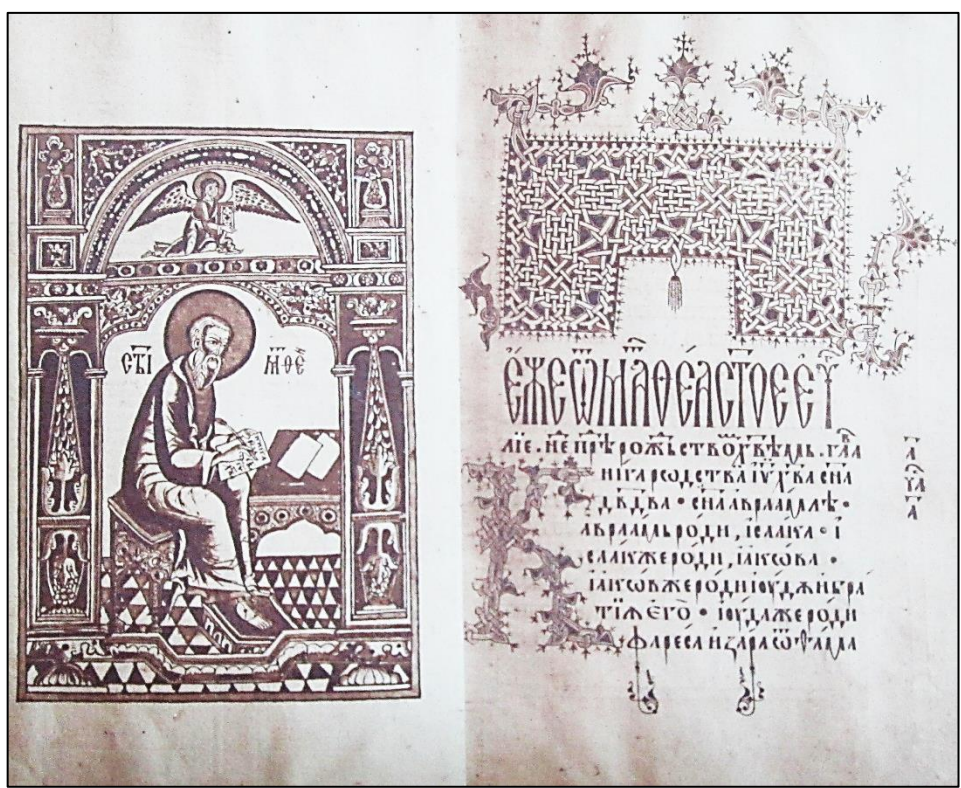 СТ҃Ї МѲЕ҃
Е҆ЖЕѾМАТѲЕ́АСТ҃ОЕЕ҆Ѵ҃
лїе. не прѣ рожьство
нїга родства і҆у҃ х҃ва сн҃а
дв҃два · сн҃а авраамлѣ ·
авраамь роди, і҆саака · і҆
саакже роди, і҆акѡва ·
і҆акѡвже роди і҆оудѫ и бра
тїѫ е҆го̀ · і҆оудаже роди
фареса и зара ѿ